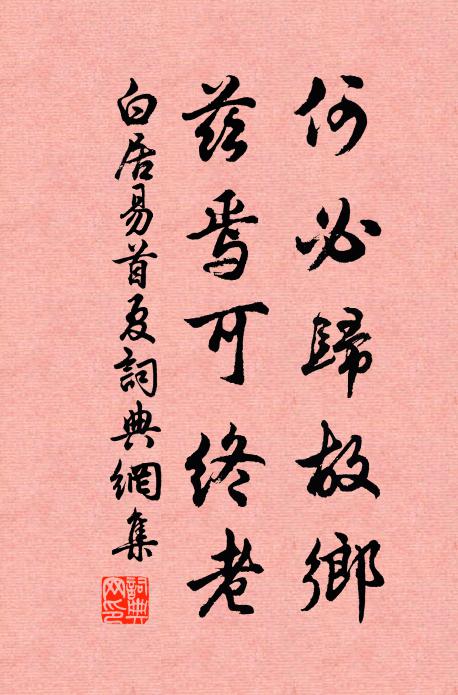 何必歸故鄉
茲焉可終老
白居易首夏詞典網集
詞典網印